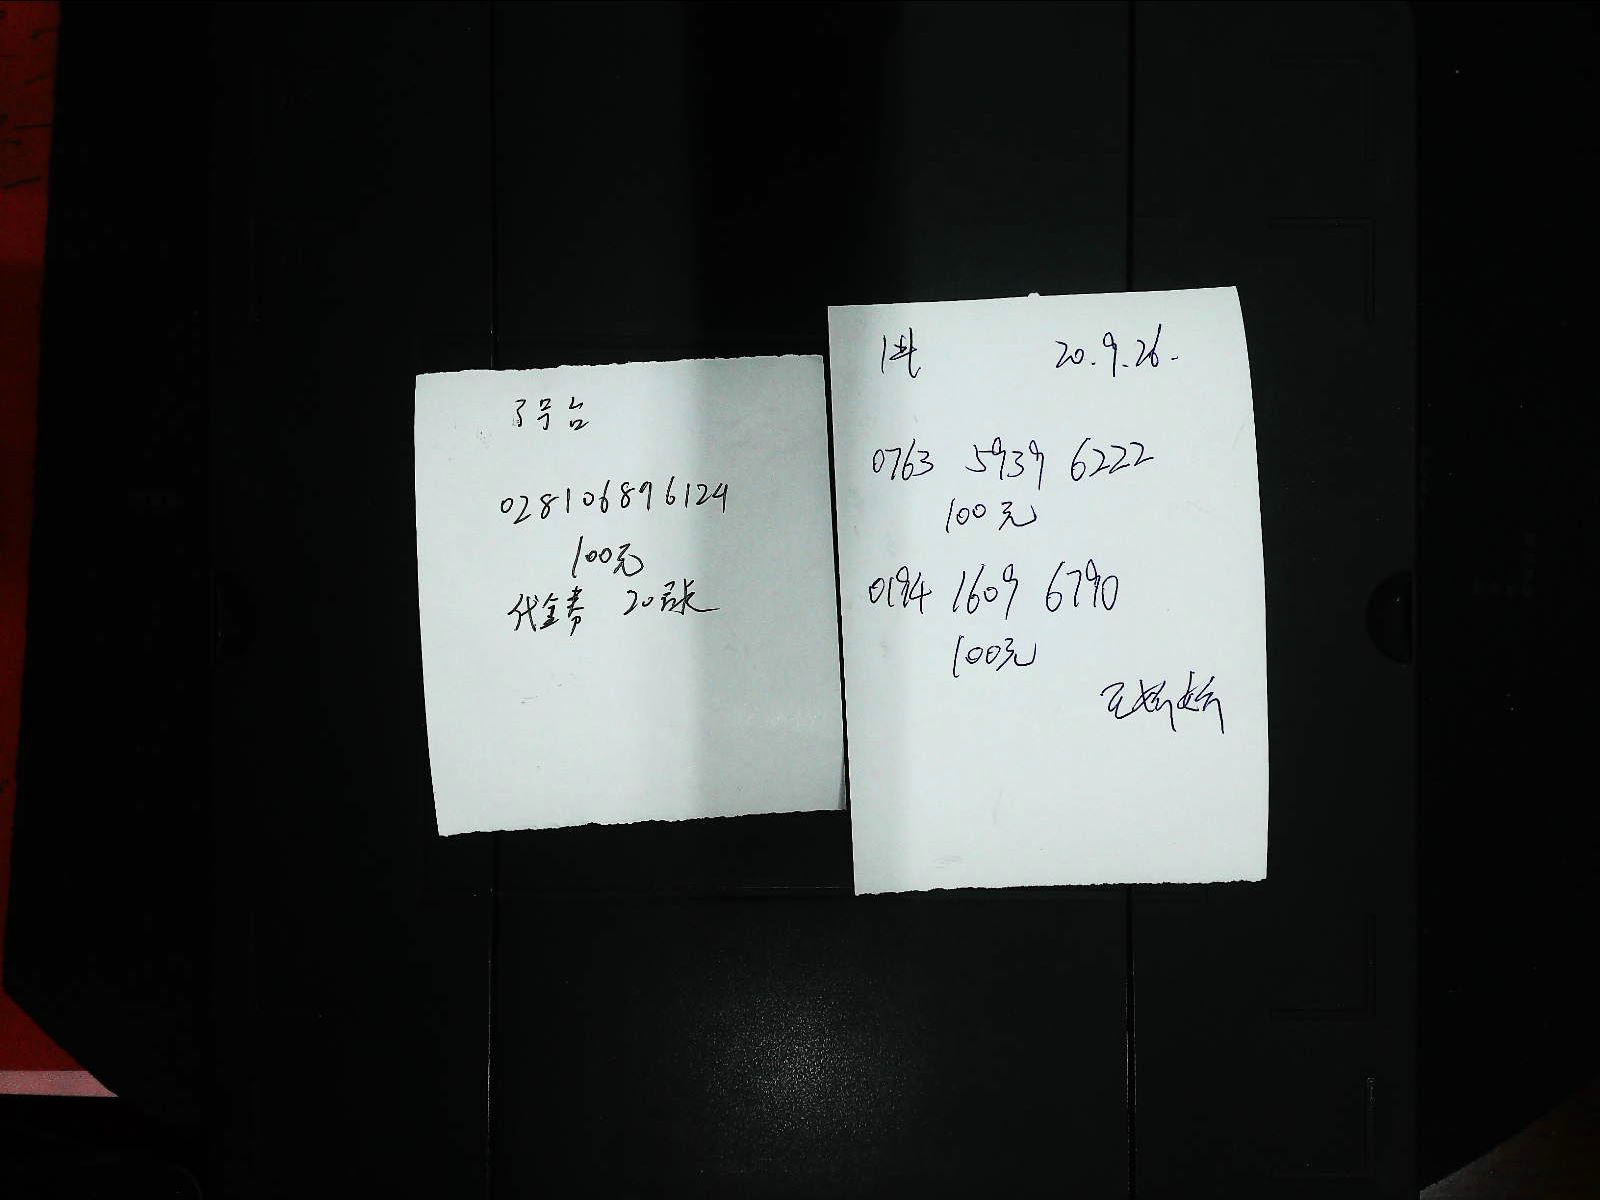 3号台
028106896124
100元
代金券 20张
1# 20.9.26.
0763 5939 6222
100元
0194 1609 6790
100元